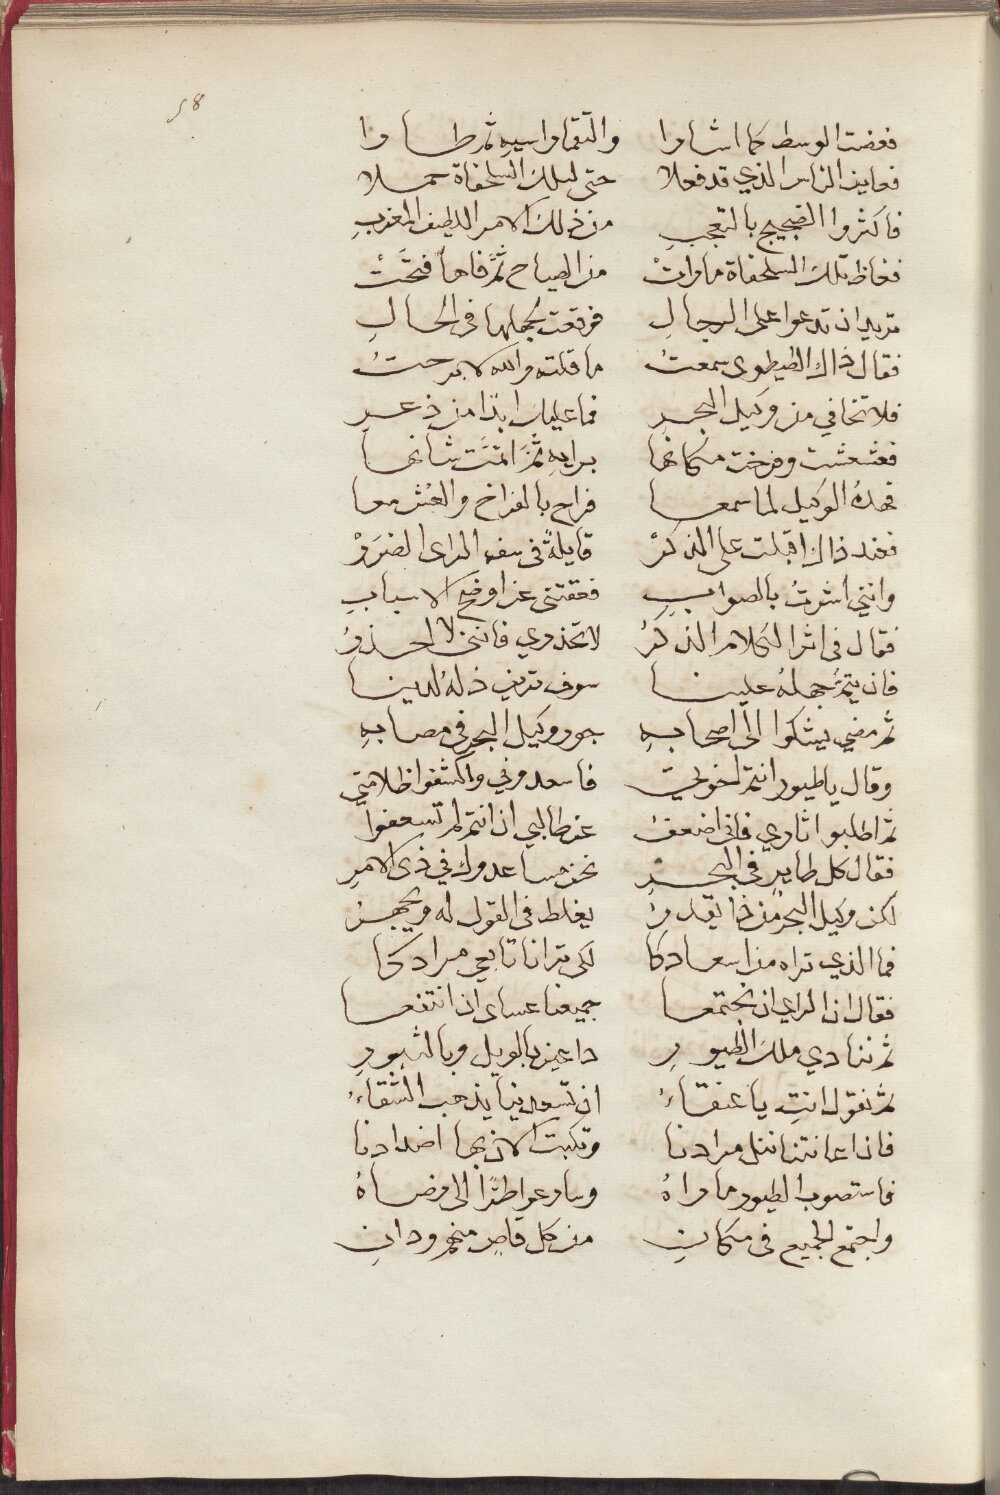 58
فعضت الوسط كما اشاروا والتقما راسيه ثم طاروا
فعاين الناس الذي قد فعلا حتى لتلك السلحفاة حملا
فاكثروا الضجيج بالتعجب من ذلك الامر اللطيف المغرب
فغاظ تلك السلحفاة ما رات من الصياح ثم فاهاً فتحت
تريد ان تدعوا على الرجال فوقعت لجهلها في الحال
فقال ذاك الطيطوى سمعت ما قلته والله لا برحت
فلا تخافي من وكيل البحر فما عليك ابدا من ذعر
فعشعشت وفرخت مكانها برايه ثم اتمت شانها
فمده الوكيل لما سمعا فراح بالفراخ والعش معا
فعند ذاك اقبلت على الذكر قايلة في سفه الراى الضرر
وانني اشرت بالصواب فعقتنى عن اوضح الاسباب
فقال في اثر الكلام الذكر لا تحذري فانني لا احذر
فان يتم جهله علينا سوف ترين ذله لدينا
ثم مضي يشكوا الى اصحابه جور وكيل البحر في مصابه
وقال يا طيور انتم اخوتي فاسعدوني واكشفوا ظلامتي
ثم اطلبوا ثاري فاني اضعف عن طالبي ان انتم لم تسعفوا
فقال كل طاير في البحر نحن مساعدوك في ذي الامر
لكن وكيل البحر من ذا يقدر يغلط في القول له ويجهر
فما الذي تراه من اسعادكا لكى ترانا تابعي مرادكا
فقال ان الراي ان نجتمعا جميعنا عساى ان انتفعا
ثم ننادي ملك الطيور داعين بالويل وبالثبور
ثم نقول انت يا عنقاء ان تسعدينا يذهب الشقاء
فاذا عانتنا ننل مرادنا وتكبت الاذى بها اضدادنا
فاستصوب الطيور ما راه وسارعوا طرًا الى رضاه
واجتمع الجميع في مكان من كل قاص منهم ودان